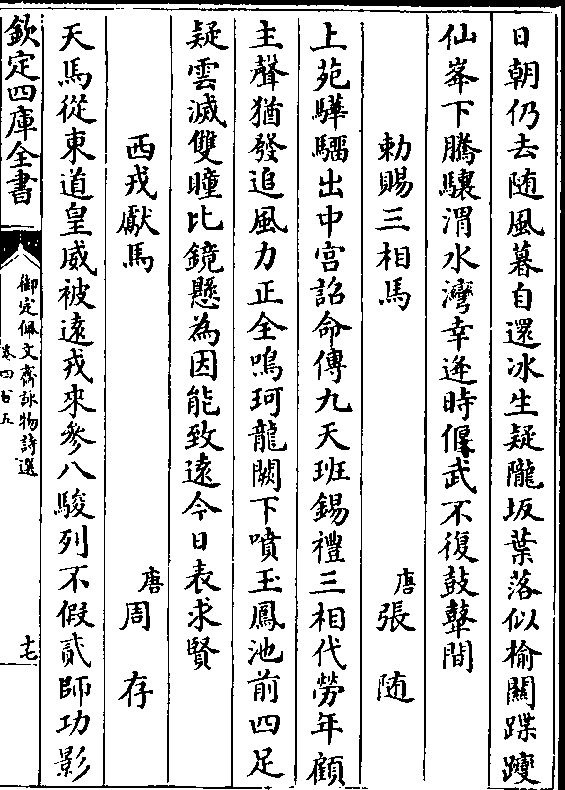 日朝仍去随風暮自還冰生疑隴坂葉落似榆關蹀躞
仙峯下騰驤渭水灣幸逢時偃武不復鼓鼙間
勅賜三相馬
唐張随
上苑驊騮出中宫詔命傳九天班錫禮三相代勞年顧
主聲猶發追風力正全鳴珂龍闕下噴玉鳳池前四足
疑雲滅雙瞳比鏡懸為因能致遠今日表求賢
西戎獻馬
唐周存
天馬從東道皇威被遠戎來參八駿列不假貳師功影
欽定四庫全書
御定佩文齋詠物詩選
卷四百五
十七